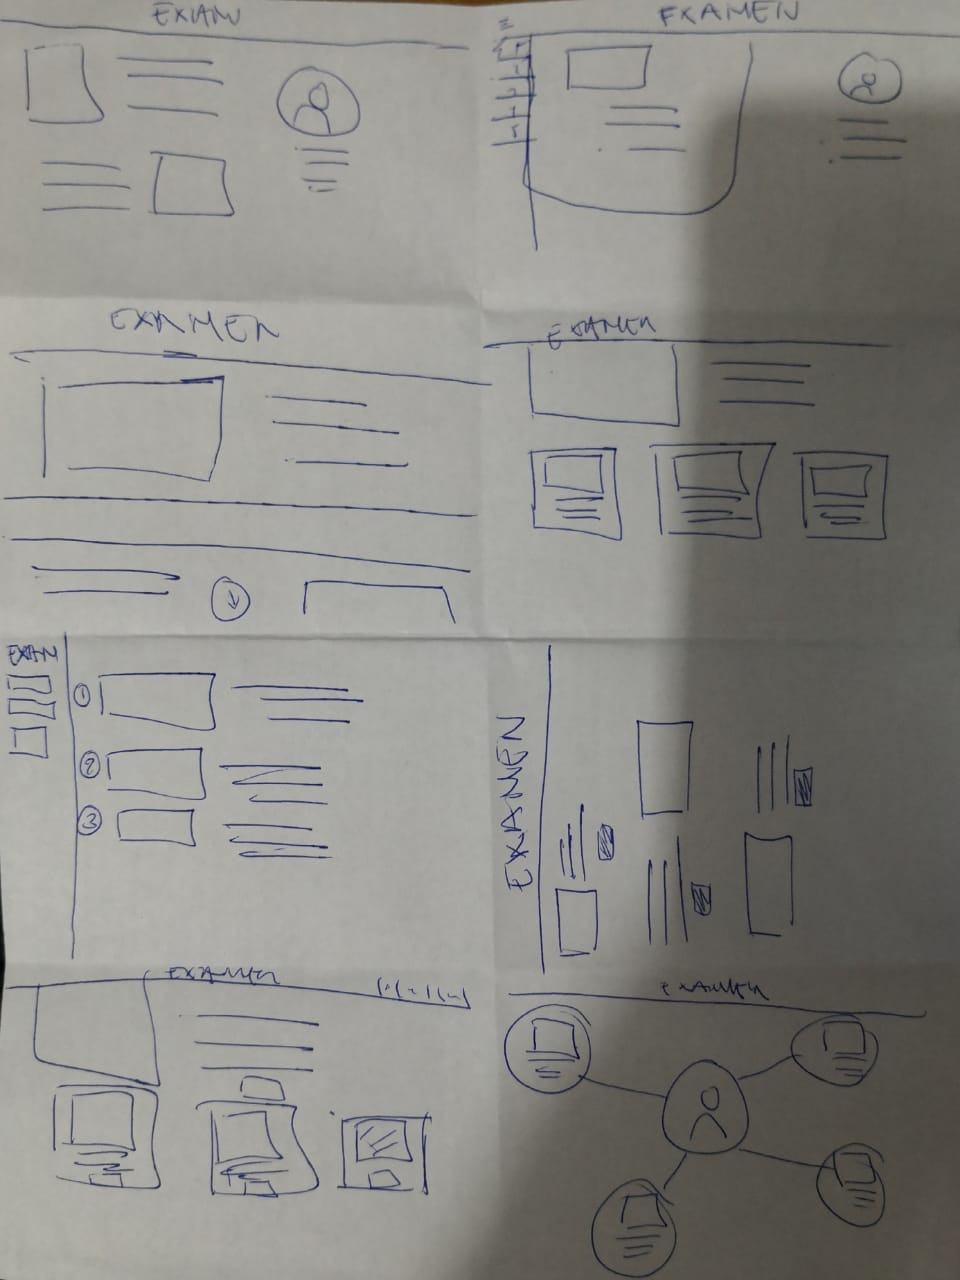 EXAM
EXAMEN
EXAMEN
EXAMEN
EXAM
1
2
3
EXAMEN
EXAMEN
EXAMEN